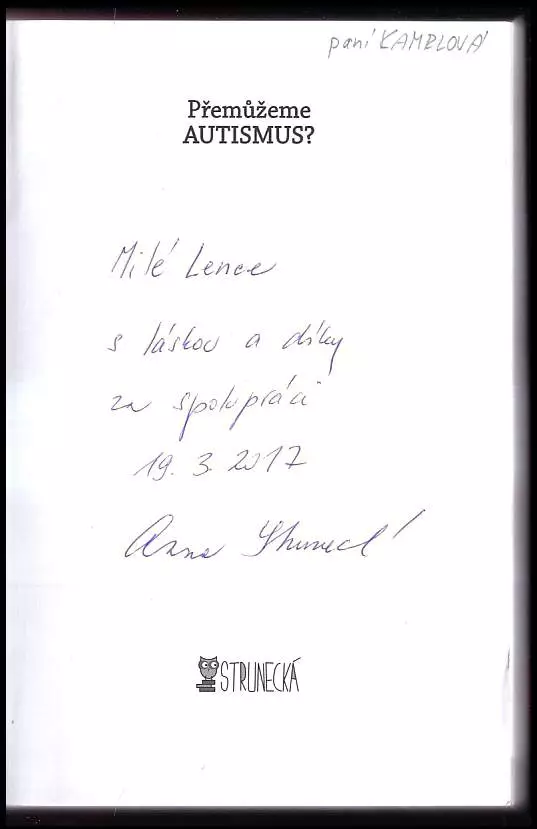 paní KAMELOVÁ
Přemůžeme
AUTISMUS?
Milé Lence
s láskou a díky
za spolupráci
19. 3. 2017
Anna Strunecká
STRUNECKÁ